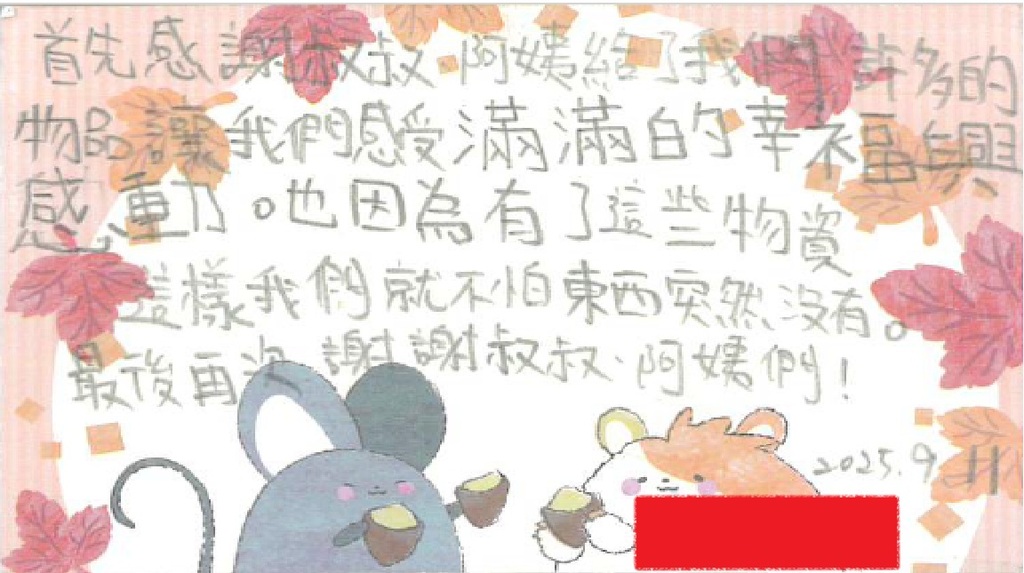 首先感謝叔叔、阿姨給了我們許多的
物品讓我們感受滿滿的幸福與
感動了。也因為有了這些物資
這樣我們就不怕東西突然沒有。
最後再次謝謝叔叔、阿姨們！
2025.9.11